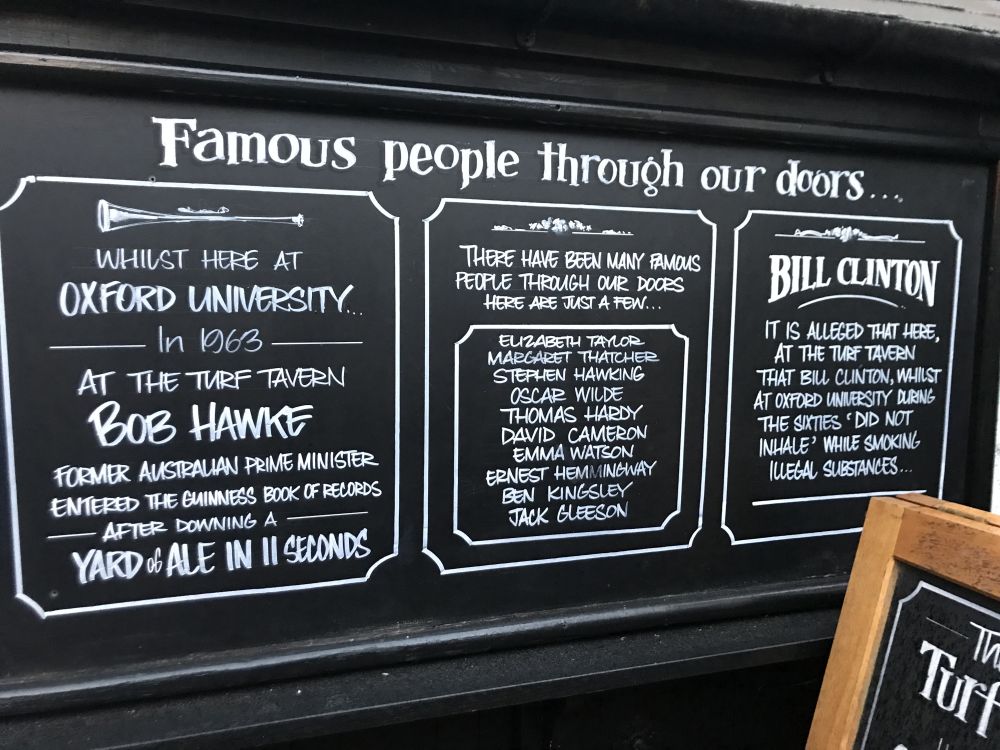 Famous people through our doors...
WHILST HERE AT
OXFORD UNIVERSITY...
In 1963
AT THE TURF TAVERN
BOB HAWKE
FORMER AUSTRALIAN PRIME MINISTER
ENTERED THE GUINNESS BOOK OF RECORDS
AFTER DOWNING A
YARD of ALE IN 11 SECONDS
THERE HAVE BEEN MANY FAMOUS
PEOPLE THROUGH OUR DOORS
HERE ARE JUST A FEW...
ELIZABETH TAYLOR
MARGARET THATCHER
STEPHEN HAWKING
OSCAR WILDE
THOMAS HARDY
DAVID CAMERON
EMMA WATSON
ERNEST HEMMINGWAY
BEN KINGSLEY
JACK GLEESON
BILL CLINTON
IT IS ALLEGED THAT HERE,
AT THE TURF TAVERN
THAT BILL CLINTON, WHILST
AT OXFORD UNIVERSITY DURING
THE SIXTIES 'DID NOT
INHALE' WHILE SMOKING
ILLEGAL SUBSTANCES...
Turf